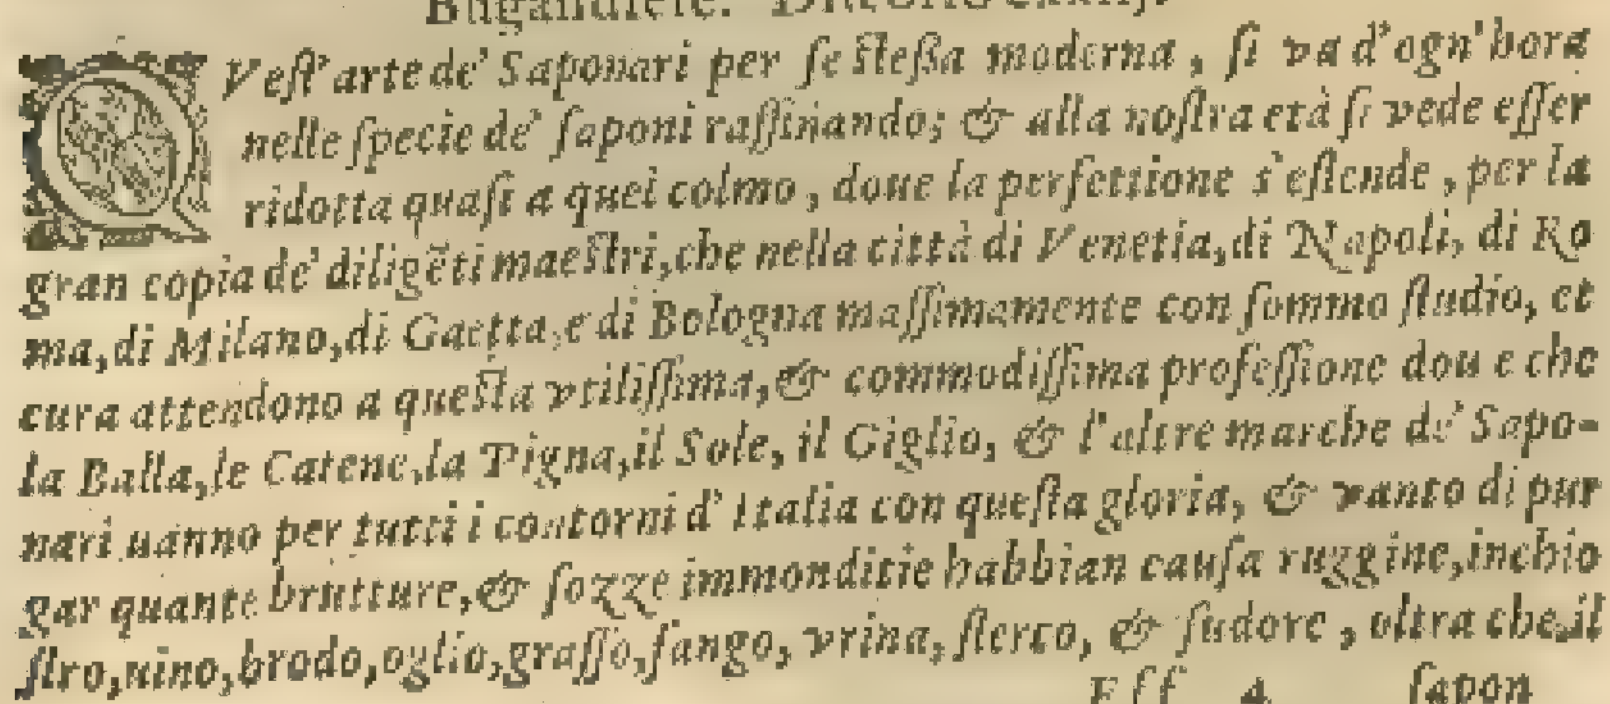 Bugandiere. Discorso
QVest' arte de' Saponari per se stessa moderna, si va d'ogn' hora
nelle specie de' saponi raffinando; & alla nostra età si vede esser
ridotta quasi a quel colmo, doue la perfettione s'estende, per la
gran copia de' diligẽti maestri, che nella città di Venetia, di Napoli, di Ro
ma, di Milano, di Gaetta, e di Bologna massimamente con sommo studio, et
cura attendono a questa vtilissima, & commodissima professione dou e che
la Balla, le Catene, la Pigna, il Sole, il Giglio, & l'altre marche de' Sapo-
nari uanno per tutti i contorni d' Italia con questa gloria, & vanto di pur
gar quante brutture, & sozze immonditie habbian causa ruggine, inchio
stro, uino, brodo, oglio, grasso, fango, vrina, sterco, & sudore, oltra che, il
Fff 4 sapon